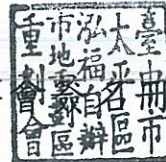 臺中市
太平區
泓福自辦
市地重劃區
重劃會